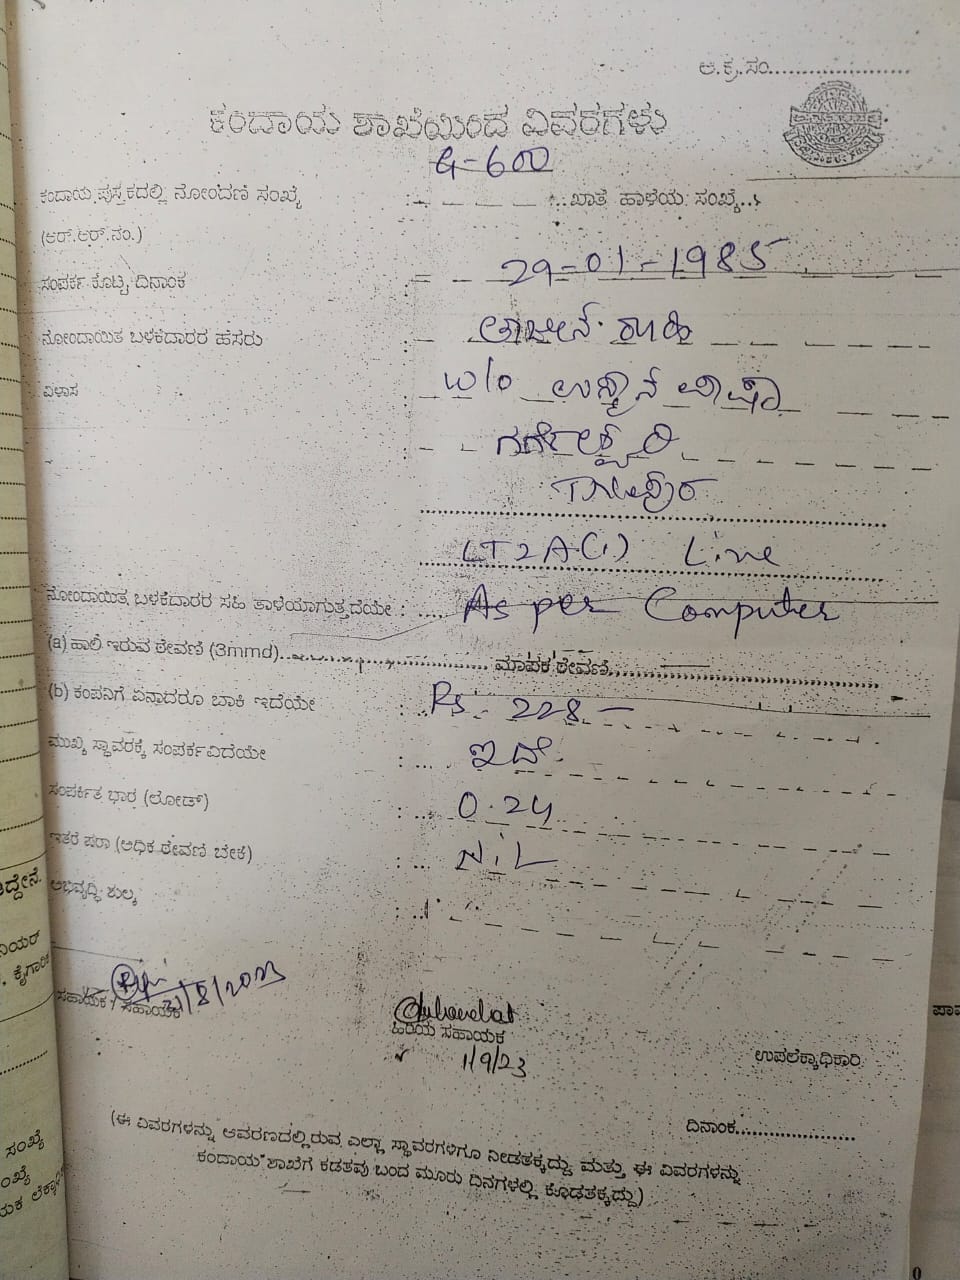 ಅ.ಕ್ರ.ಸಂ......................
ಕಂದಾಯ ಶಾಖೆಯಿಂದ ವಿವರಗಳು
G-600
ಕಂದಾಯ ಪುಸ್ತಕದಲ್ಲಿ ನೋಂದಣಿ ಸಂಖ್ಯೆ : ಖಾತೆ ಹಾಳೆಯ ಸಂಖ್ಯೆ..
(ಆರ್.ಆರ್.ನಂ.)
ಸಂಪರ್ಕ ಕೊಟ್ಟ ದಿನಾಂಕ 29-01-1985
ನೋಂದಾಯಿತ ಬಳಕೆದಾರರ ಹೆಸರು :
ವಿಳಾಸ : w/o ಉಸ್ಮಾನ್ ಪಾಷಾ
LT2A(1) Line
ನೋಂದಾಯಿತ ಬಳಕೆದಾರರ ಸಹಿ ತಾಳೆಯಾಗುತ್ತದೆಯೇ : .... As per Computer
(a) ಹಾಲಿ ಇರುವ ಠೇವಣಿ (3mmd)........ ಮಾಪಕ ಠೇವಣಿ........
(b) ಕಂಪನಿಗೆ ಏನಾದರೂ ಬಾಕಿ ಇದೆಯೇ : .. Rs. 228-
ಮುಖ್ಯ ಸ್ಥಾವರಕ್ಕೆ ಸಂಪರ್ಕವಿದೆಯೇ : .... ಇದೆ.
ಸಂಪರ್ಕಿತ ಭಾರ (ಲೋಡ್) : .... 0.24
ಇತರೆ ಪರಾ (ಅಧಿಕ ಠೇವಣಿ ಬೇಕೆ) : .... NiL
ಅಭಿವೃದ್ಧಿ ಶುಲ್ಕ : ..
31/8/2023
ಸಹಾಯಕ / ಸಹಾಯಕಿ
ಹಿರಿಯ ಸಹಾಯಕ
1/9/23
ಉಪಲೆಕ್ಕಾಧಿಕಾರಿ
ದಿನಾಂಕ....................
(ಈ ವಿವರಗಳನ್ನು ಆವರಣದಲ್ಲಿರುವ ಎಲ್ಲಾ ಸ್ಥಾವರಗಳಿಗೂ ನೀಡತಕ್ಕದ್ದು ಮತ್ತು ಈ ವಿವರಗಳನ್ನು
ಕಂದಾಯ ಶಾಖೆಗೆ ಕಡತವು ಬಂದ ಮೂರು ದಿನಗಳಲ್ಲಿ ಕೊಡತಕ್ಕದ್ದು)